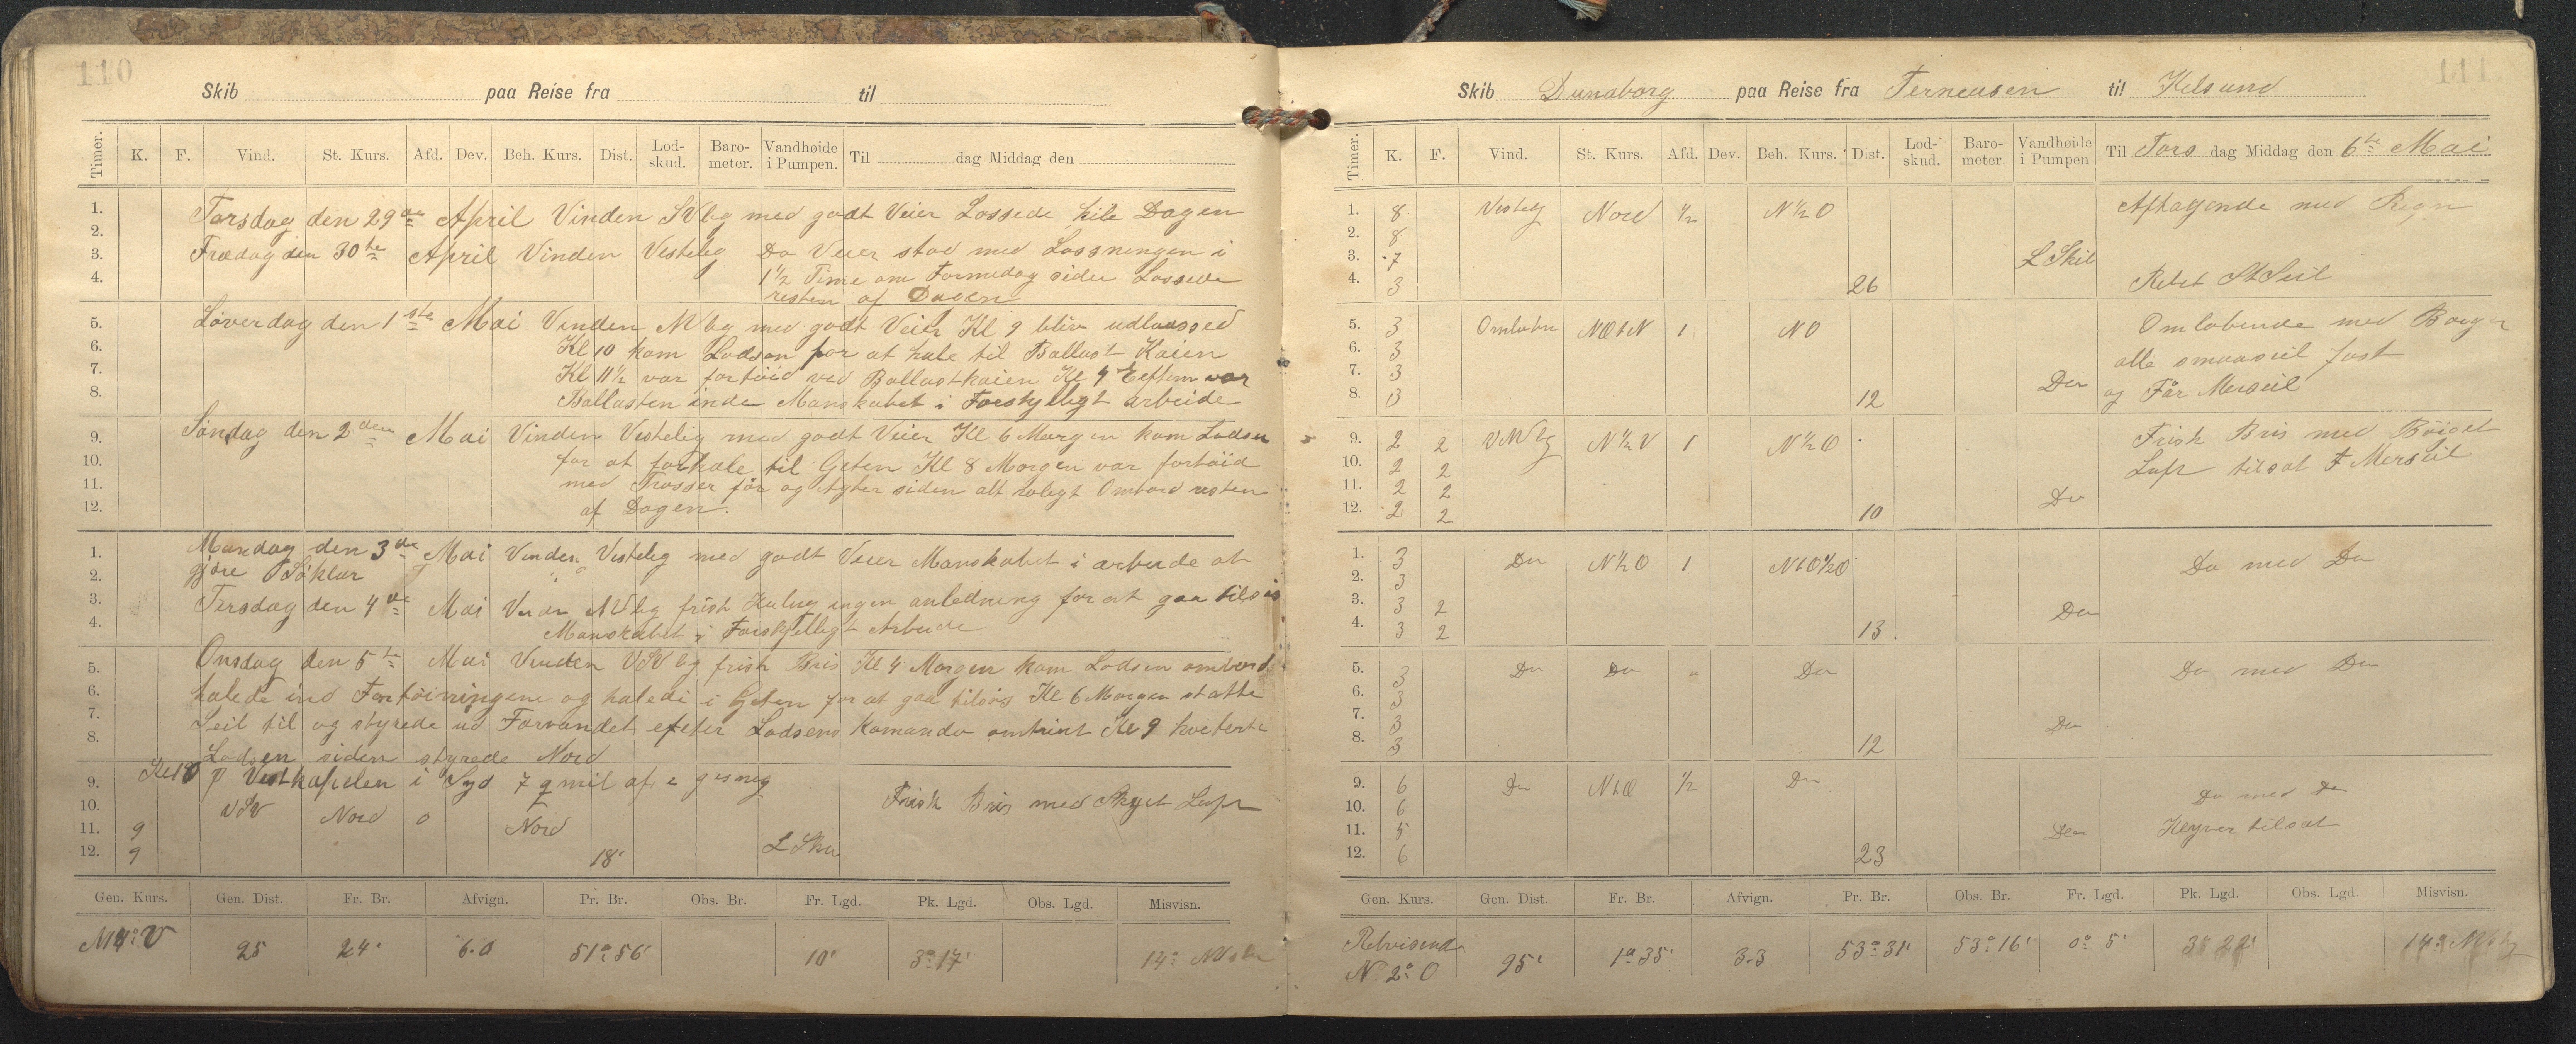 110
Skib paa Reise fra til
Timer. K. F. Vind. St. Kurs. Afd. Dev. Beh. Kurs. Dist. Lod-skud. Baro-meter. Vandhøide i Pumpen. Til dag Middag den
1. Torsdag den 29de April Vinden SVlig med godt Veier Lossede hile Dagen
2.
3. Fredag den 30te April Vinden Vestelig Do Veier stod med Losningen i
4. 1 1/2 Time om Formedag siden Lossede
resten af Dagen
5. Løverdag den 1ste Mai Vinden NVlig med godt Veier Kl 9 bliv udlaassed
6. Kl 10 kom Lodsen for at hale til Ballast Kaien
7. Kl 11 1/2 var fortöid ved Ballastkaien Kl 4 Eftem var
8. Ballasten inde Manskabet i Forskjelligt arbeide
9. Søndag den 2den Mai Vinden Vestelig med godt Veier Kl 6 Morgen kom Lodsen
10. for at forhale til Geten Kl 8 Morgen var fortöid
11. med Trosser for og Agter siden alt rolegt Ombord resten
12. af Dagen.
1. Mandag den 3de Mai Vinden Vestelig med godt Veier Manskabet i arbeide at
2. gjøre Söklar
3. Tirsdag den 4de Mai Vinden NVlig frisk Kuling ingen anledning for at gaa tilsös
4. Manskabet i Forskjelligt Arbeide
5. Onsdag den 5te Mai Vinden VSVlig frisk Bris Kl 4 Morgen kom Lodsen ombord
6. halede ind Fortöiningene og halede i Geten for at gaa tilsös Kl 6 Morgen statte
7. Seil til og styrede ud Farvandet efter Lodsens Komando omtrint Kl 9 kveterte
8. Lodsen siden styrede Nord
9. Kl 10 p Vestkapelen i Syd 7 q mil af
10. VSV Nord 0 Nord Frisk Bris med Skyet Luft
11. 9
12. 9 18' L Skib
Gen. Kurs. Gen. Dist. Fr. Br. Afvign. Pr. Br. Obs. Br. Fr. Lgd. Pk. Lgd. Obs. Lgd. Misvisn.
25 24' 6.0 51° 56' 10' 3° 17' 14°
111
Skib Dunaborg paa Reise fra Terneusen til Kilsund
Timer. K. F. Vind. St. Kurs. Afd. Dev. Beh. Kurs. Dist. Lod-skud. Baro-meter. Vandhøide i Pumpen Til Tors dag Middag den 6te Mai
1. 8 Vestelg Nord 1/2 N 1/2 O Aftagende med Regn
2. 8
3. 7 L Skib
4. 3 26 Rebet StSeil
5. 3 NOtN 1 NO Omlobende med Bøiger
6. 3 alle smaaseil fast
7. 3 Do
8. 3 12 og Får Merseil
9. 2 2 VNVlg N 1/2 V 1 N 1/2 O Frisk Bris med Böiget
10. 2 2 Luft tilsat F Merseil
11. 2 2 Do
12. 2 2 10
1. 3 Do N 1/2 O 1 NtO 1/2 O Do med Do
2. 3
3. 3 2 Do
4. 3 2 13
5. 3 Do Do " Do Do med Do
6. 3
7. 3 Do
8. 3 12
9. 6 Do NtO 1/2 Do
10. 6 Do med Do
11. 5 Do Klyver tilsat
12. 6 23
Gen. Kurs. Gen. Dist. Fr. Br. Afvign. Pr. Br. Obs. Br. Fr. Lgd. Pk. Lgd. Obs. Lgd. Misvisn.
Retvisende
N 2° O 95' 1° 35' 3.3 53° 31' 53° 16' 0° 5' 3° 22' 14°